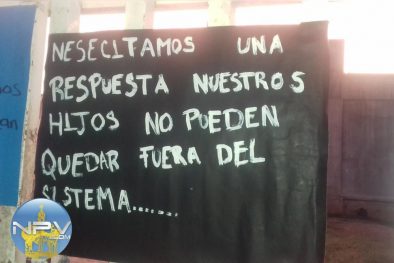 NESECITAMOS UNA
RESPUESTA NUESTROS
HIJOS NO PUEDEN
QUEDAR FUERA DEL
SISTEMA.......
NPV